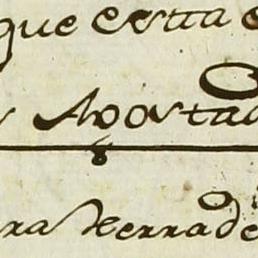 que esta
Apostad
ra Herrade